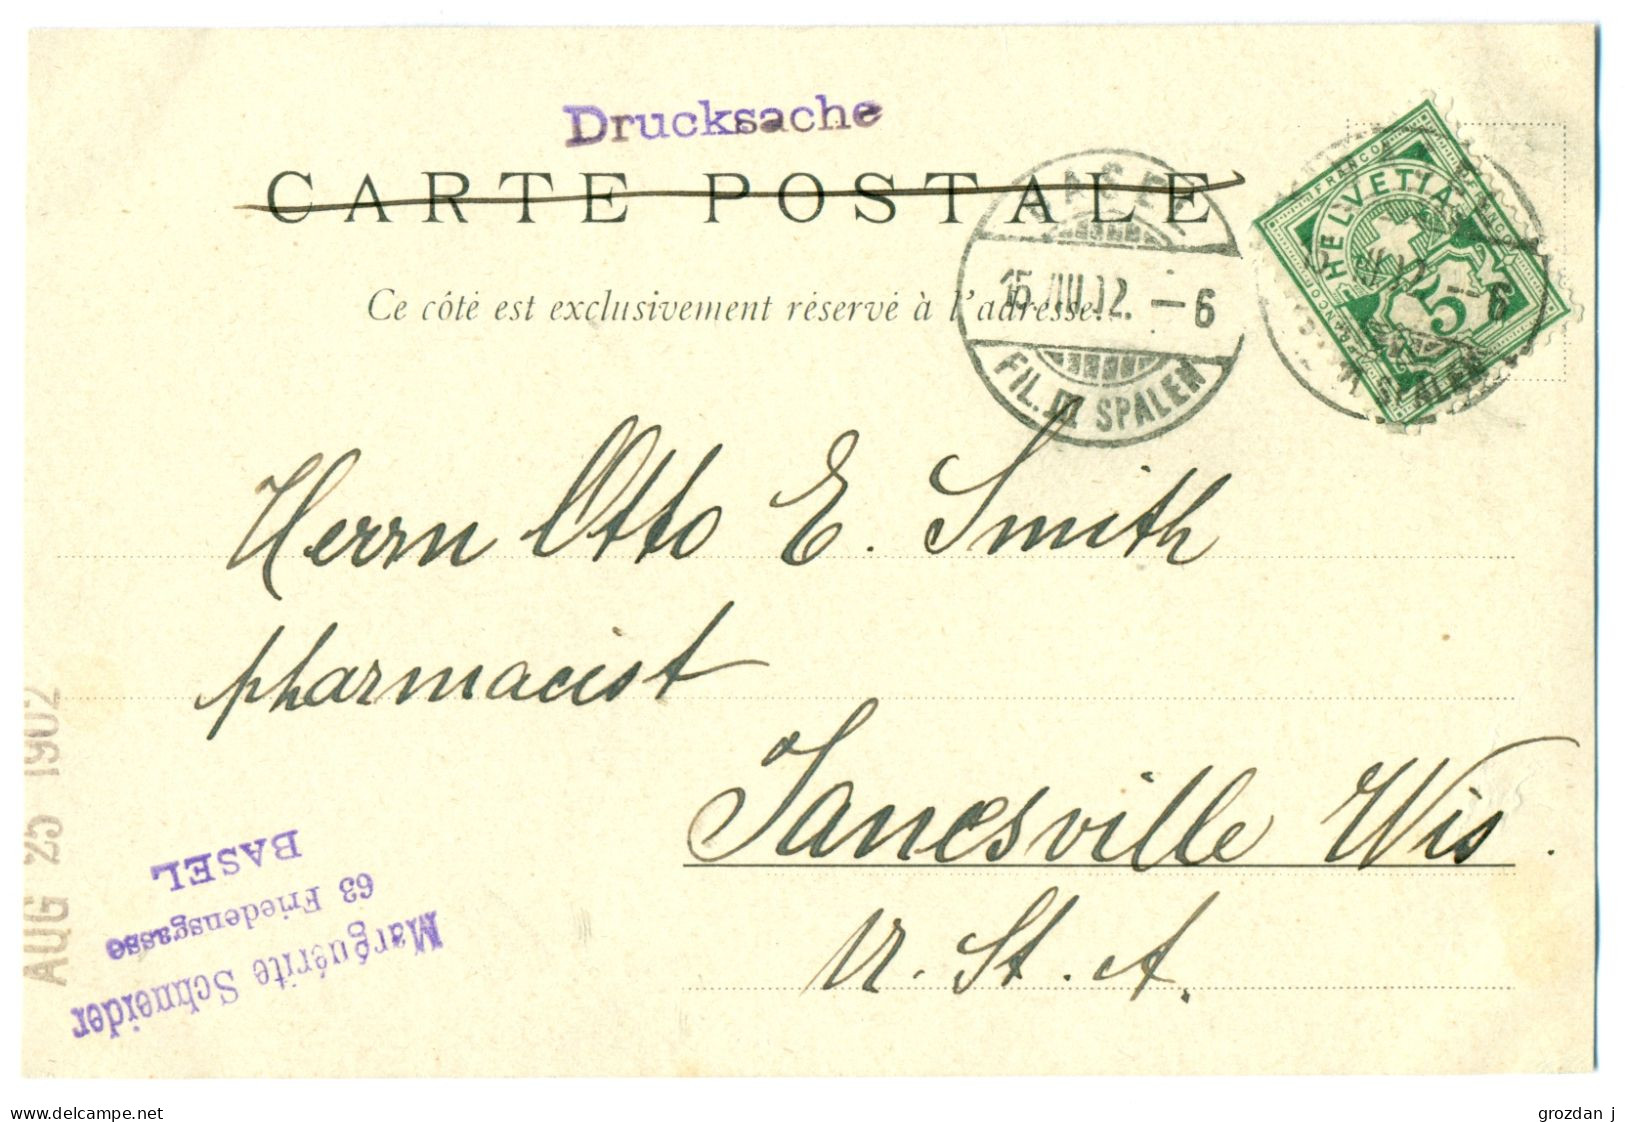 Drucksache
CARTE POSTALE
Ce côté est exclusivement réservé à l'adresse.
BASEL
15.VIII.02. –6
FIL. III SPALEN
FRANCO
HELVETIA
5
–6
SPALEN
Herrn Otto E. Smith
pharmacist
Janesville Wis.
U. St. A.
AUG 25 1902
Marguérite Schneider
63 Friedensgasse
BASEL
delcampe.net
grozdan j